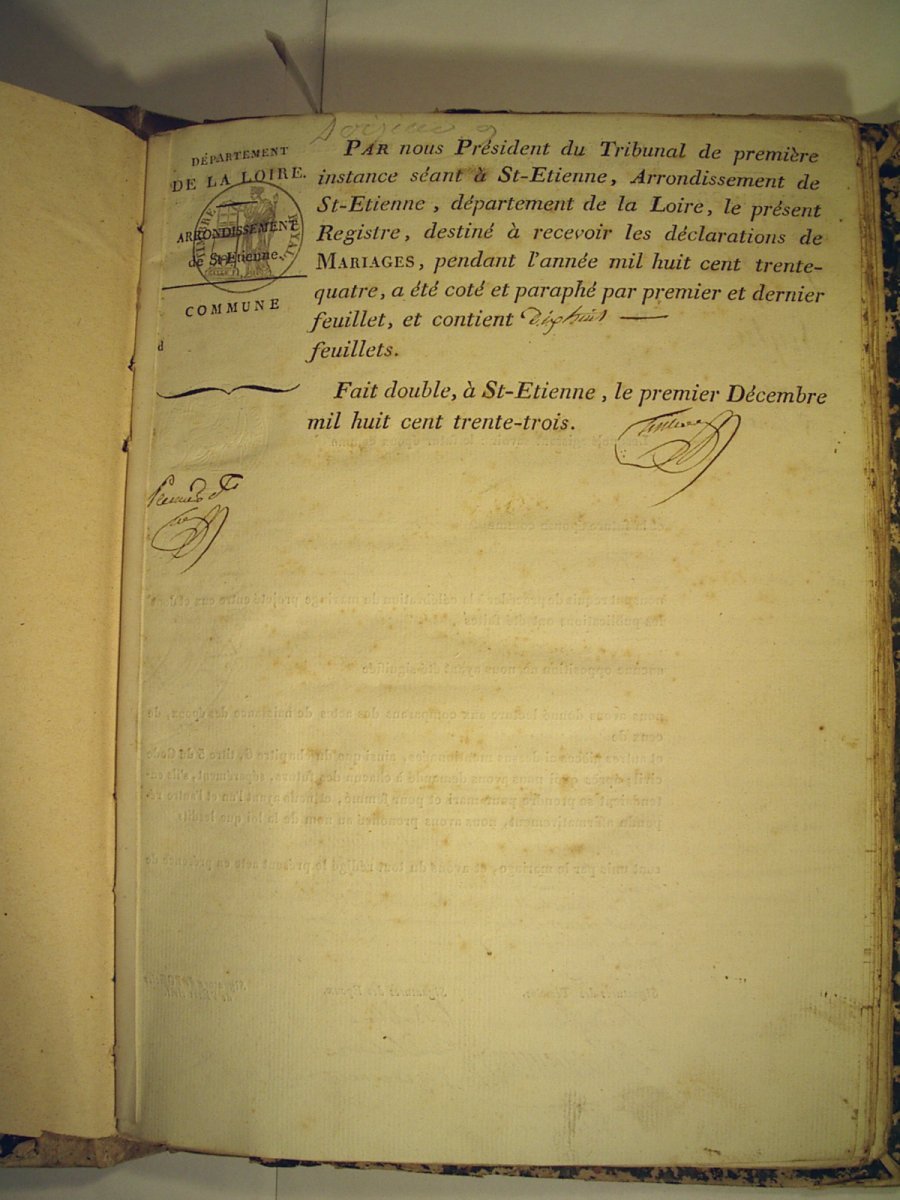 DÉPARTEMENT
DE LA LOIRE.
TIMBRE ROYAL
ARRONDISSEMENT
de St-Etienne.
COMMUNE
d
PAR nous Président du Tribunal de première
instance séant à St-Etienne, Arrondissement de
St-Etienne, département de la Loire, le présent
Registre, destiné à recevoir les déclarations de
MARIAGES, pendant l'année mil huit cent trente-
quatre, a été coté et paraphé par premier et dernier
feuillet, et contient dix huit
feuillets.
Fait double, à St-Etienne, le premier Décembre
mil huit cent trente-trois.